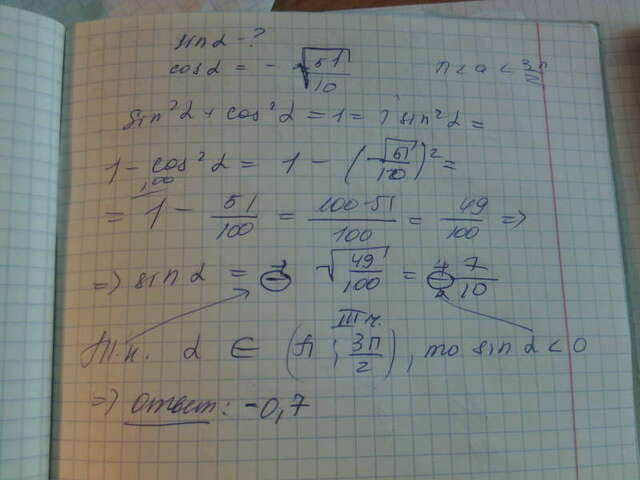 sin α - ?
cos α = - √51/10    π < α < 3π/2
sin²α + cos²α = 1 => sin²α =
1 - cos²α = 1 - (-√51/10)² =
= 1 - 51/100 = (100-51)/100 = 49/100 =>
=> sin α = - √49/100 = - 7/10
III ч.
Т.к. α ∈ (π ; 3π/2), то sin α < 0
=> Ответ: -0,7